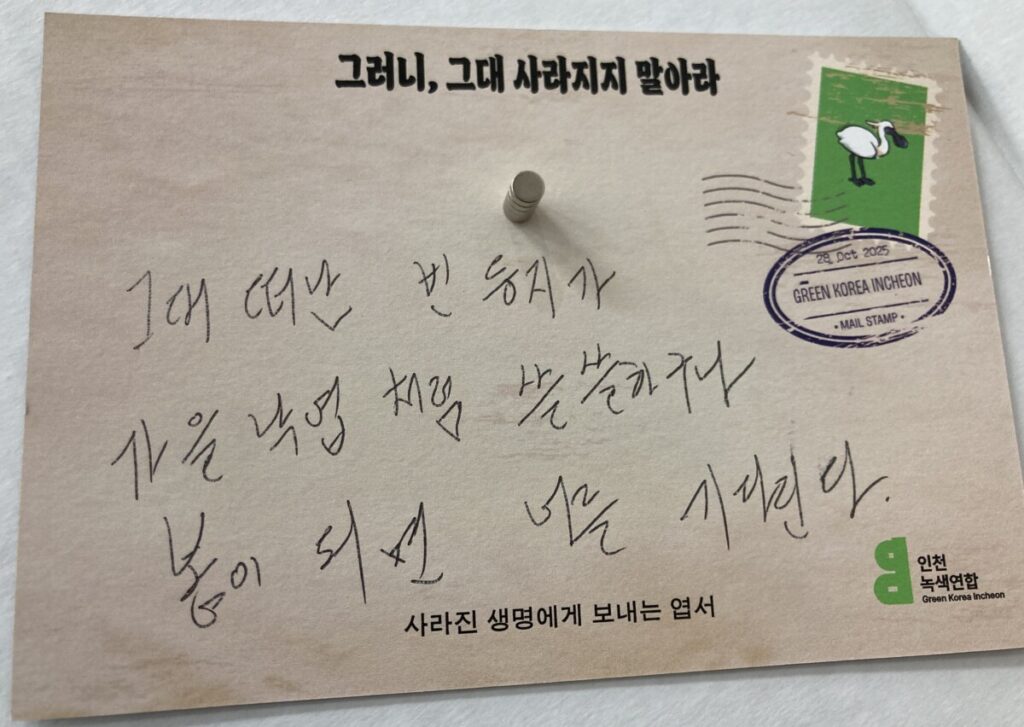 그러니, 그대 사라지지 말아라
28, Oct 2025
GREEN KOREA INCHEON
• MAIL STAMP •
그대 떠난 빈 둥지가
가을 낙엽 처럼 쓸쓸하구나
봄이 되면 너를 기다린다.
인천
녹색연합
Green Korea Incheon
사라진 생명에게 보내는 엽서